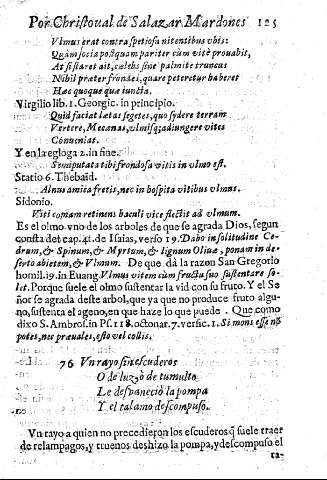 Por Christoual de Salazar Mardones 125
Vlmus erat contra spetiosa nitentibus vbis:
Quàm socia postquam pariter cum vite prouabit,
At si staret ait, cælebs sine palmite truncus
Nihil præter frondes, quare peteretur haberet
Hac quoque qua iuncta.
Virgilio lib. 1. Georgic. in principio.
Quid faciat lætas segetes, quo sydere terram
Vertere, Mecanas, vlmisq; adiungere vites
Conueniat.
Y en la egloga 2. in fine.
Semiputata tibi frondosa vitis in vlmo est.
Statio 6. Thebaid.
Alnus amica fretis, nec in hospita vitibus vlmus.
Sidonio.
Viti comam retinens baculi vice flectit ad vlmum.
Es el olmo vno de los arboles de que se agrada Dios, segun
consta del cap. 41. de Isaias, verso 19. Dabo in solitudine Ce-
drum, & Spinum, & Myrtum, & lignum Oliuæ, ponam in de-
serto abietem, & Vlmum. De que dà la razon San Gregorio
homil. 19. in Euang Vlmus vitem cùm fructu suo sustentare so-
let. Porque suele el olmo sustentar la vid con su fruto. Y el Se
ñor se agrada deste arbol, que ya que no produce fruto algu-
no, sustenta el ageno, en que haze lo que puede. Que como
dixo S. Ambros. in Ps. 118. octonar. 7. versic. 1. Si mons esse nō
potes, nec præuales, esto vel collis.
76 Vn rayo sin escuderos
O de luz, ò de tumulto
Le desvaneciò la pompa
Y el talamo descompuso.
Vn rayo a quien no precedieron los escuderos q̄ suele traer
de relampagos, y truenos deshizo la pompa, y descompuso el
ta-